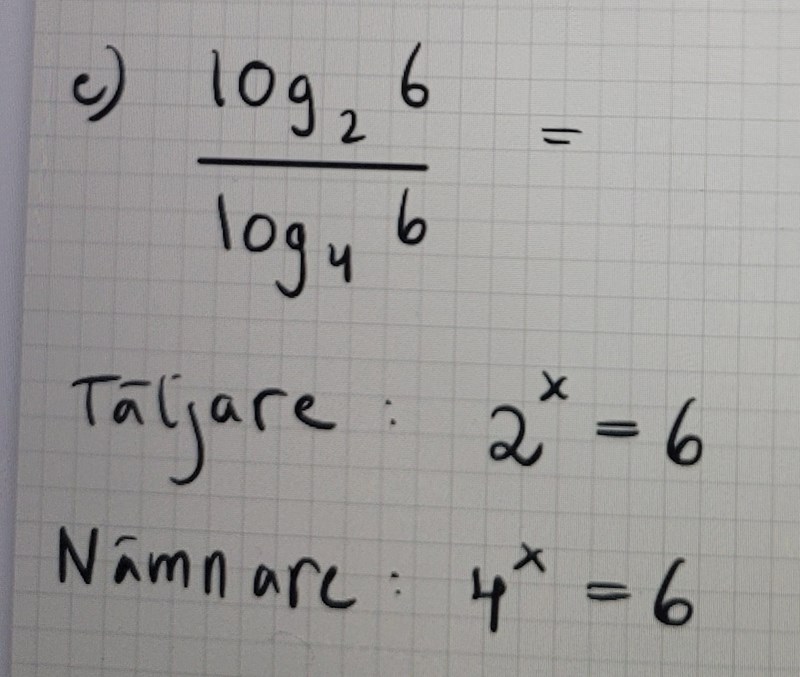 c) log₂ 6 / log₄ 6 =
Täljare : 2ˣ = 6
Nämnare : 4ˣ = 6